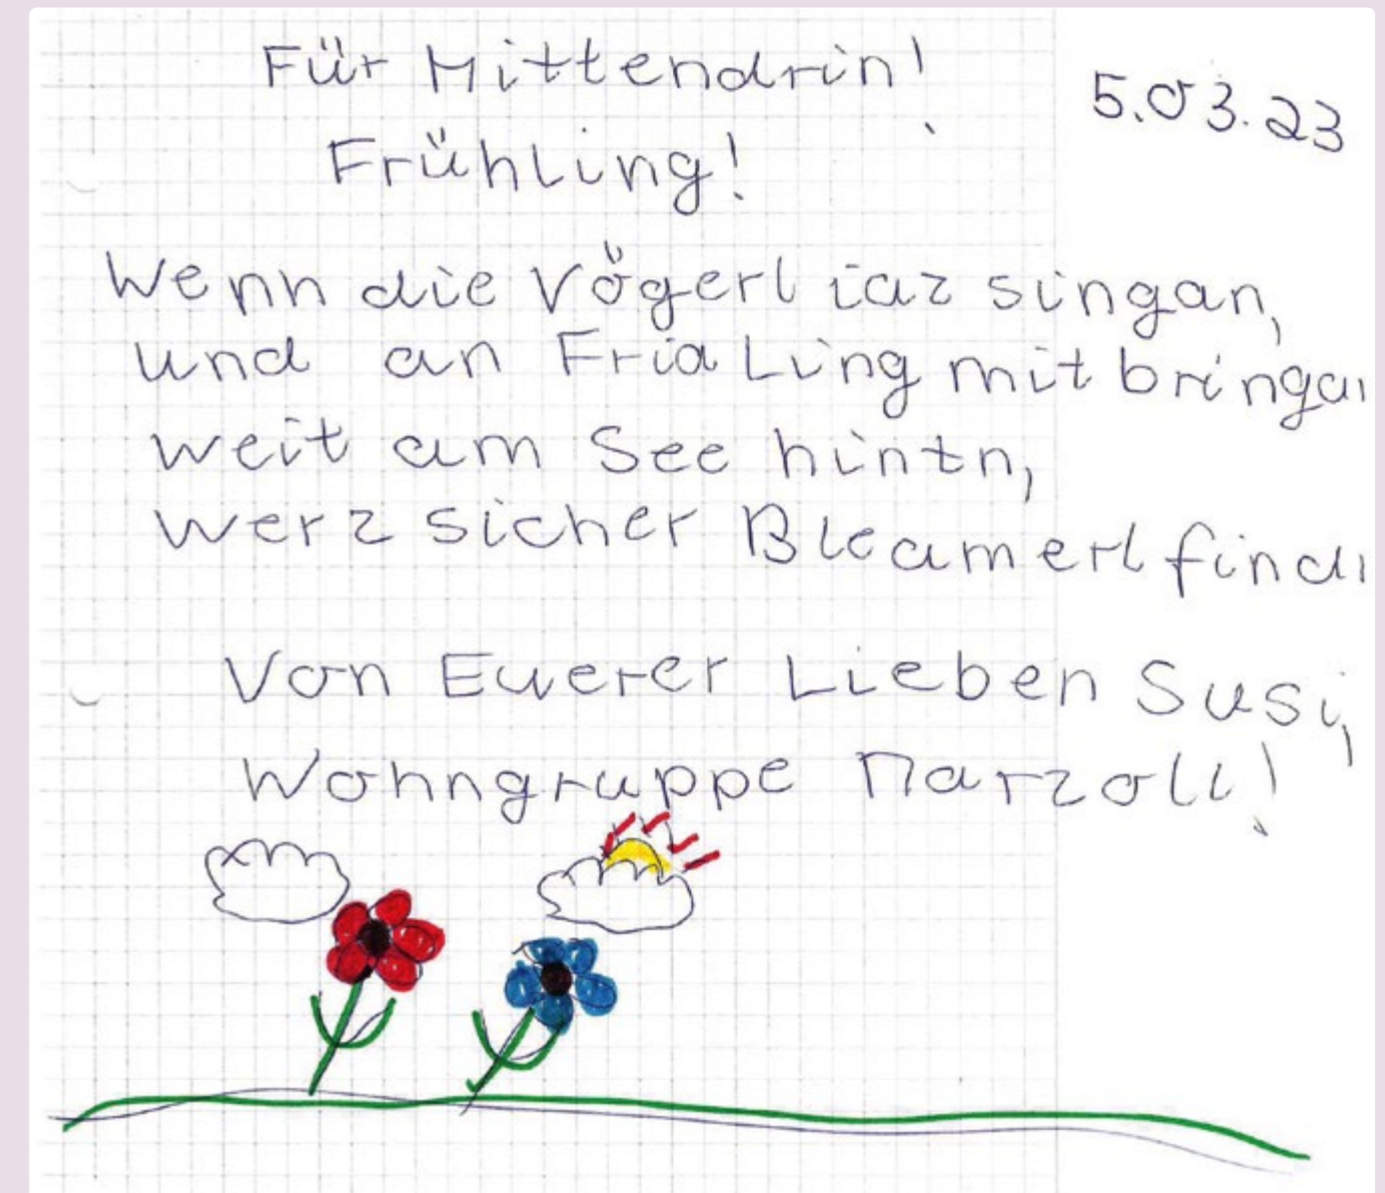 Für Mittendrin!
5.03.23
Frühling!
Wenn die Vögerl iaz singan,
und an FriaLing mit bringa
weit am See hintn,
werz sicher Bleamerl find
Von Euerer Lieben Susi,
Wohngruppe Marzoll!